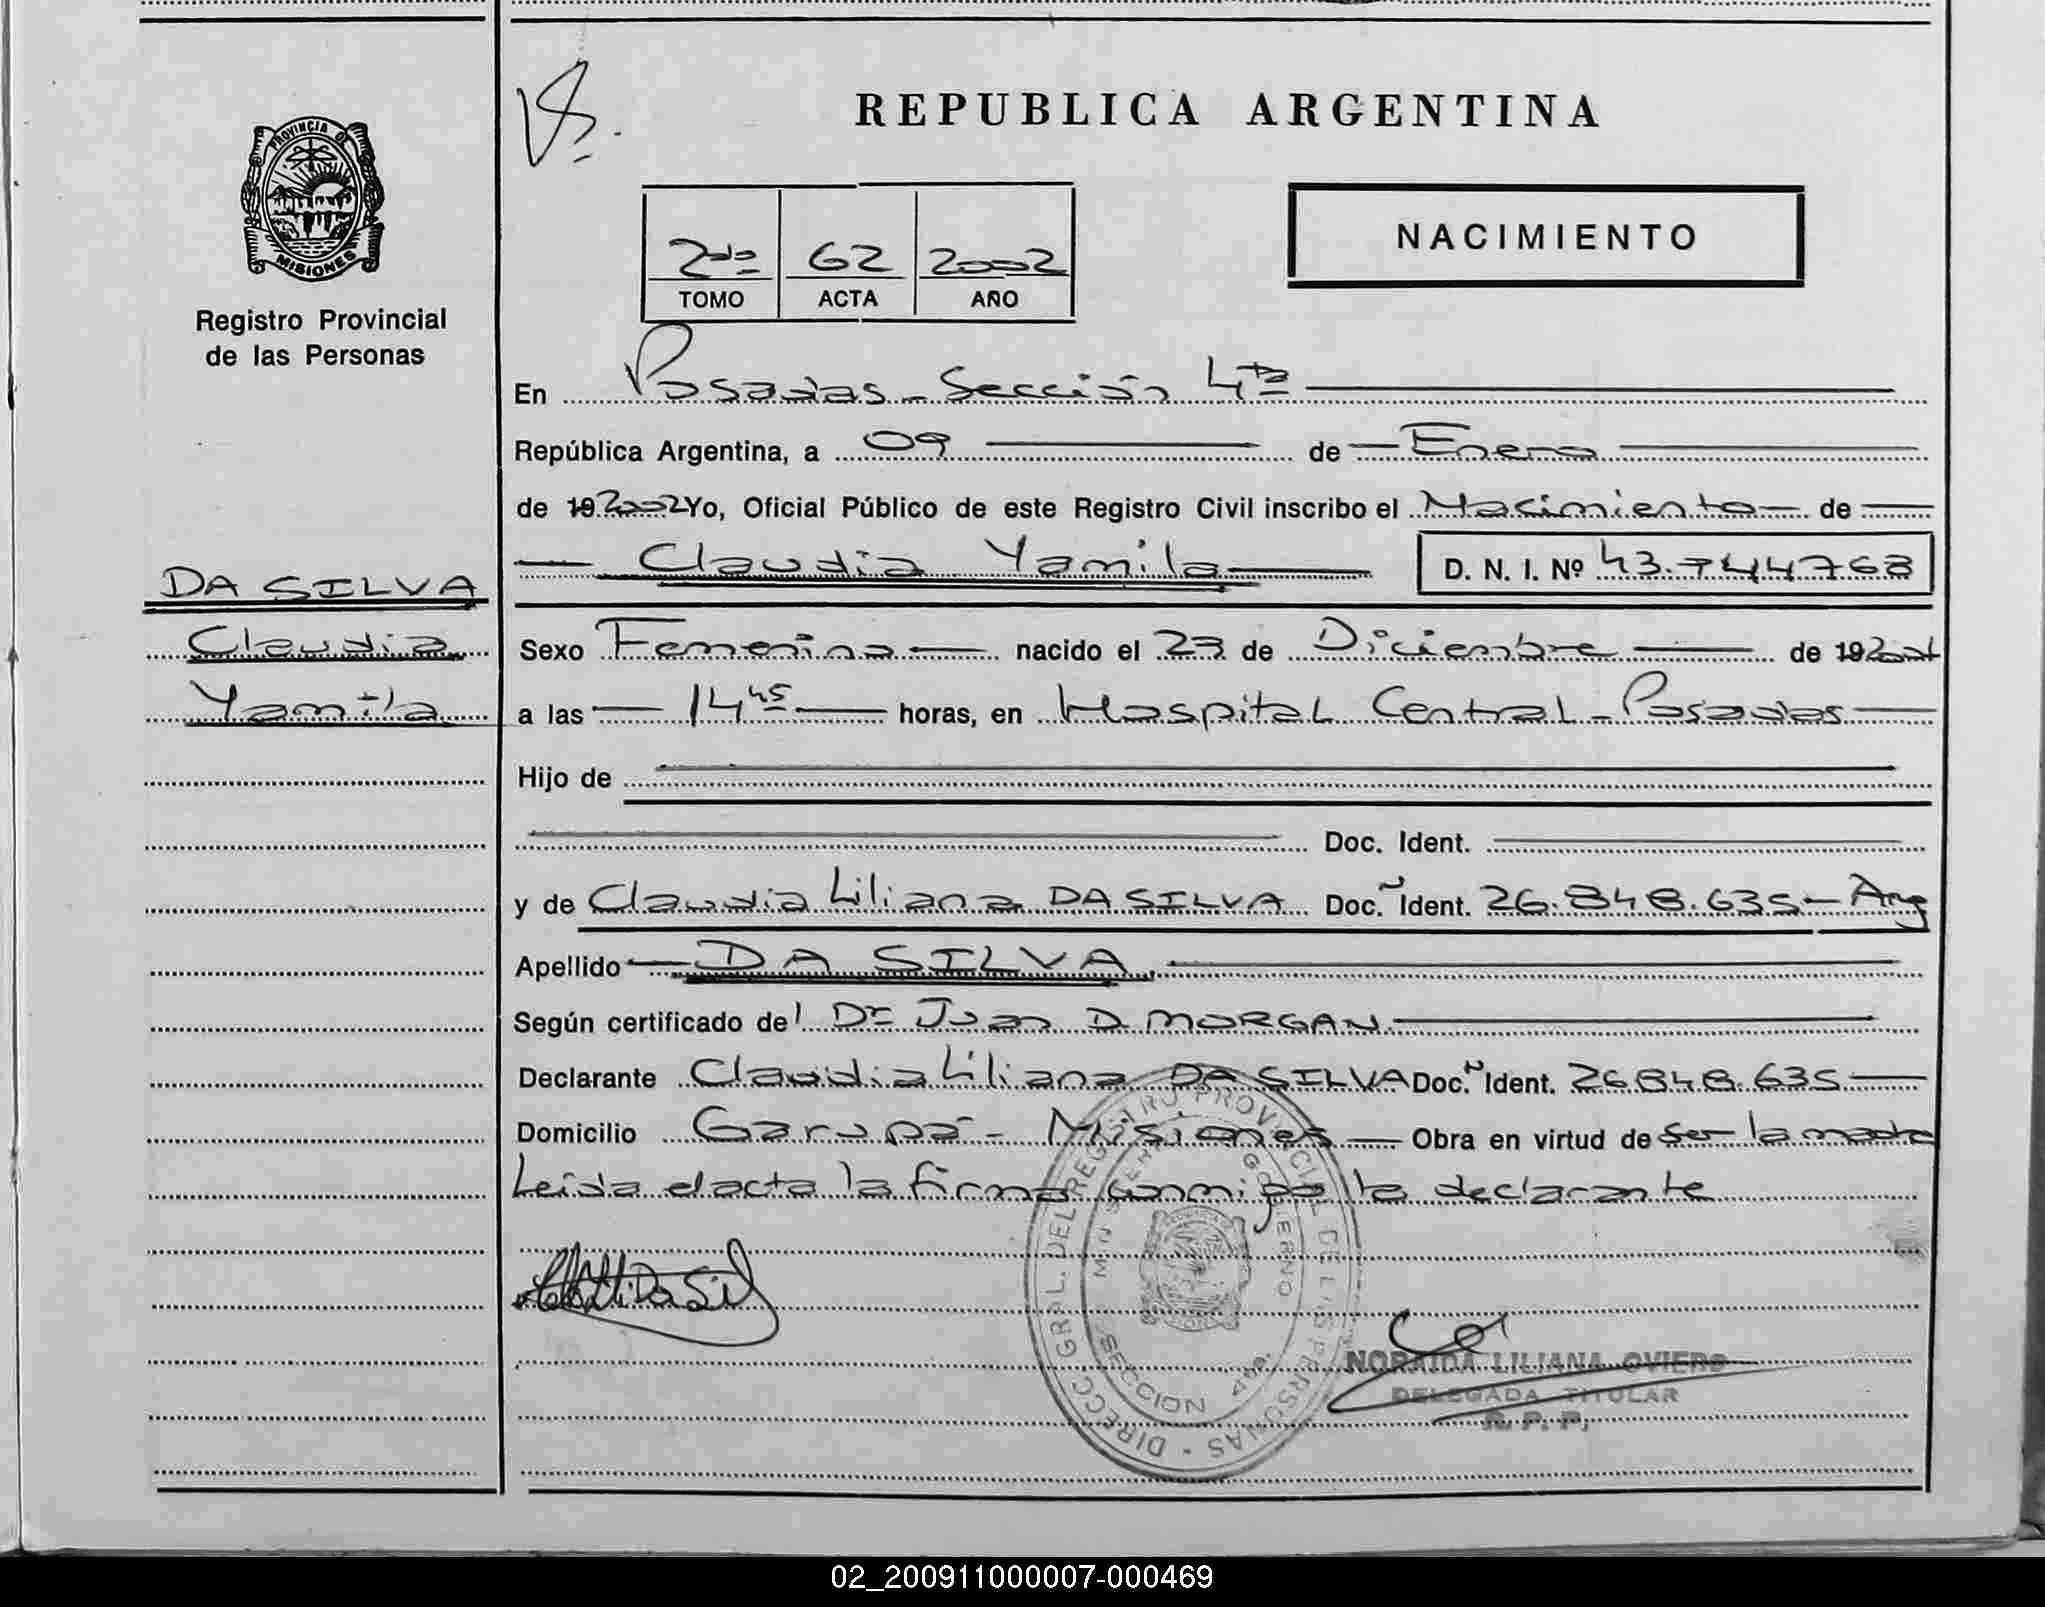 REPUBLICA ARGENTINA
PROVINCIA DE
MISIONES
Registro Provincial
de las Personas
NACIMIENTO
2do 62 2002
TOMO ACTA AÑO
En Posadas - Sección 4ta
República Argentina, a 09 de Enero
de 19 2002 Yo, Oficial Público de este Registro Civil inscribo el Nacimiento de
Claudia Yamila D. N. I. Nº 43.744768
DA SILVA
Claudia
Yamila
Sexo Femenino nacido el 23 de Diciembre de 19 2001
a las 14 45 horas, en Hospital Central - Posadas
Hijo de
Doc. Ident.
y de Claudia Liliana DA SILVA Doc. Ident. 26.848.635 - Arg
Apellido DA SILVA
Según certificado del Dr Juan D. MORGAN
Declarante Claudia Liliana DA SILVA Doc. Ident. 26.848.635
Domicilio Garupá - Misiones Obra en virtud de ser la madre
Leída el acta la firma conmigo la declarante
DIRECC. GRAL. DEL REGISTRO PROVINCIAL DE LAS PERSONAS
MINISTERIO GOBIERNO
SECCION 4ta.
NORAIDA LILIANA OVIEDO
DELEGADA TITULAR
R. P. P.
02_200911000007-000469